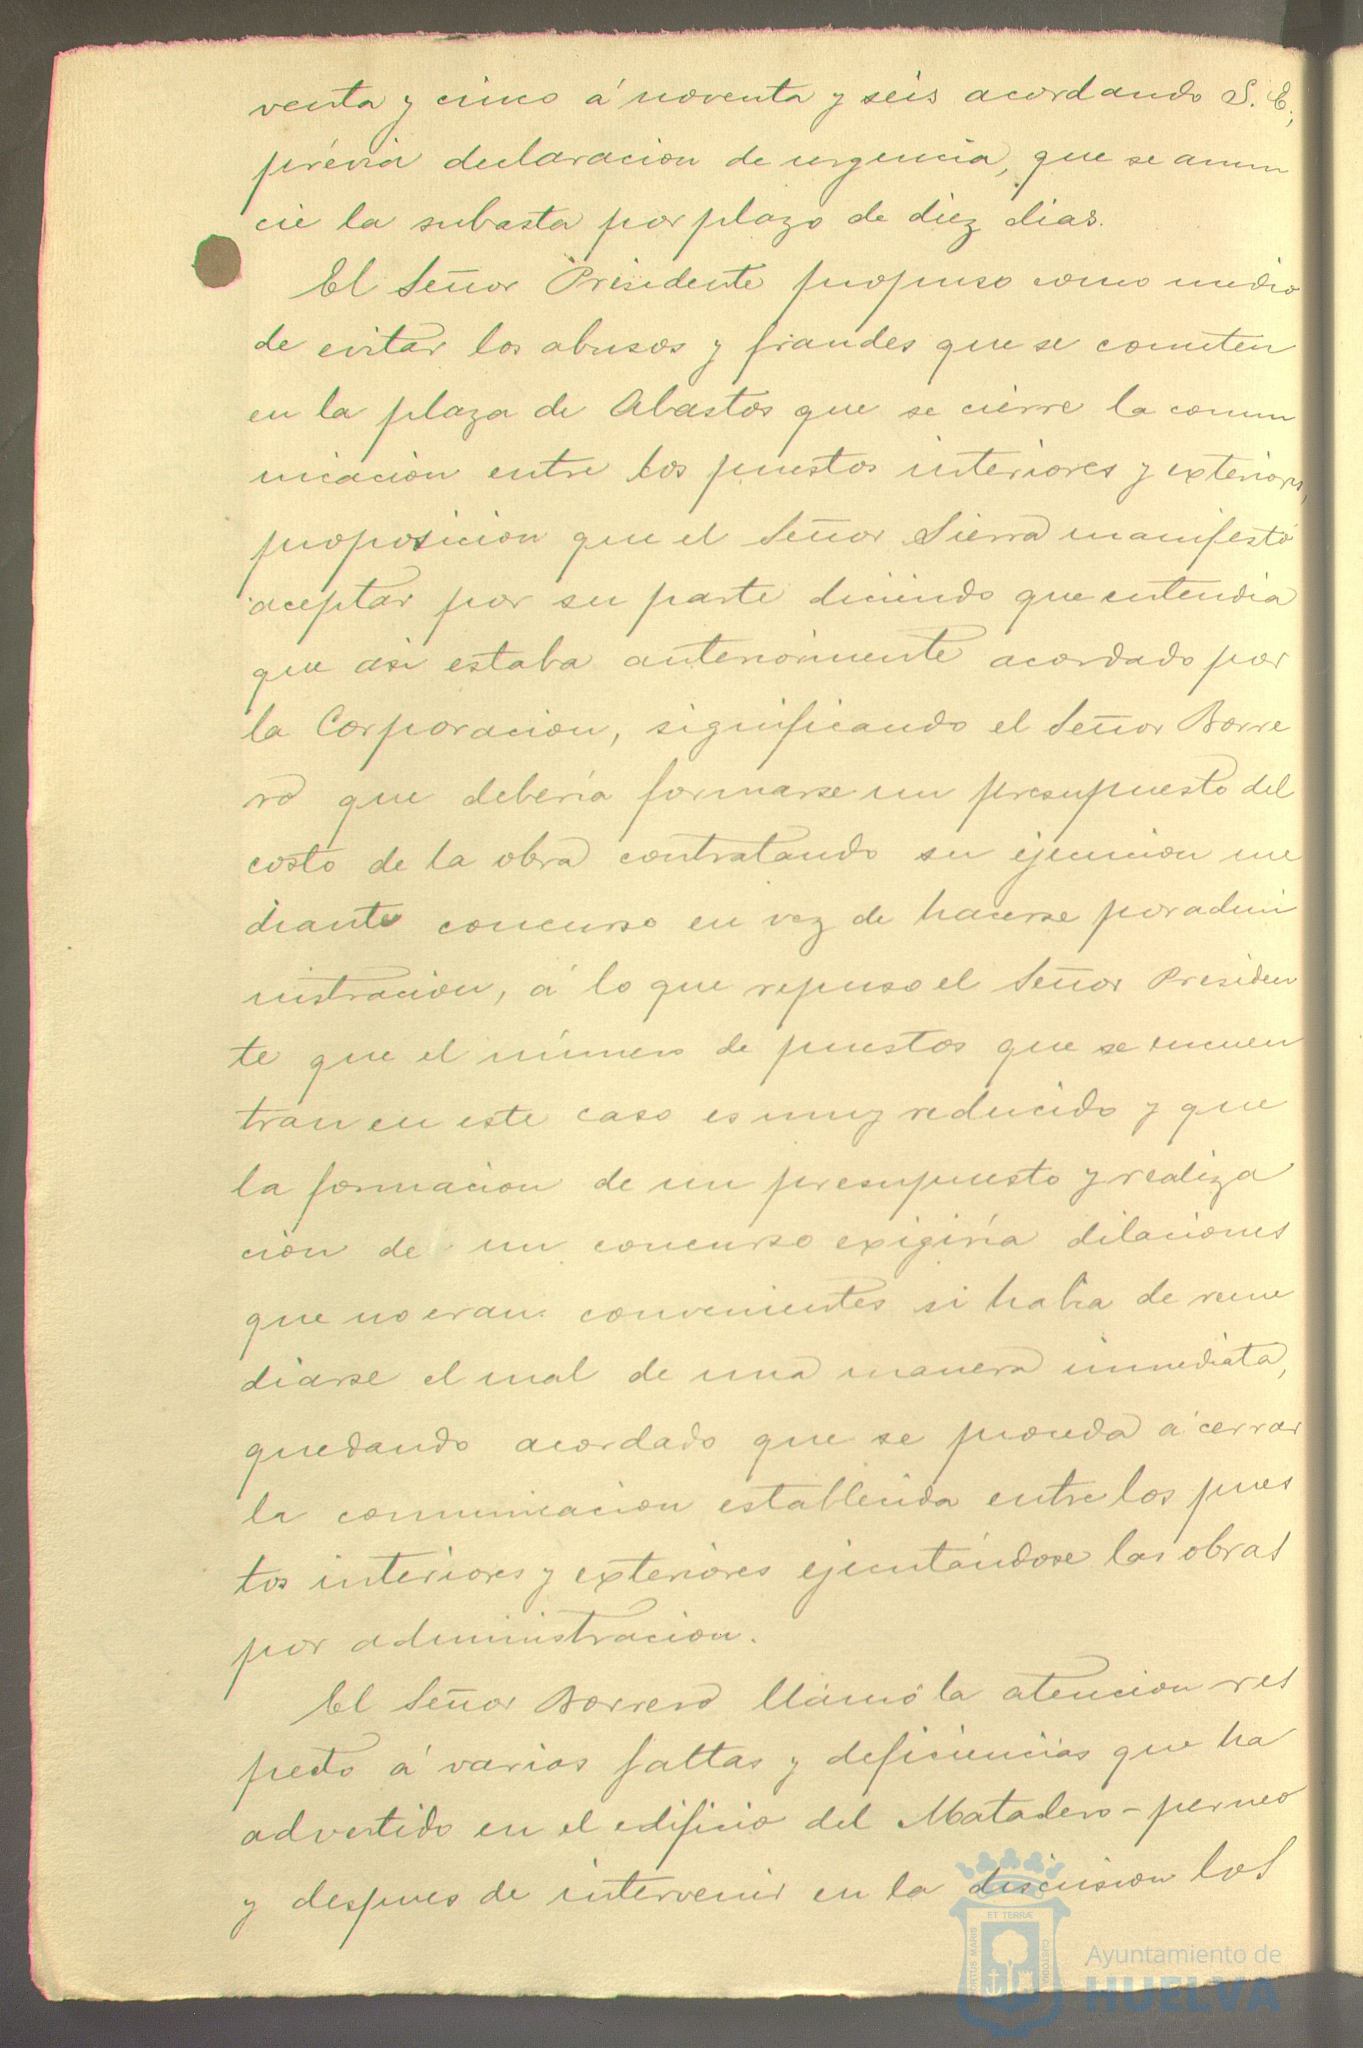 venta y cinco á noventa y seis acordando S. E.,
prévia declaracion de urgencia, que se anun
cie la subasta por plazo de diez dias.
El Señor Presidente propuso como medio
de evitar los abusos y fraudes que se cometen
en la plaza de Abastos que se cierre la comu
nicacion entre los puestos interiores y exteriores,
proposicion que el Señor Sierra manifestó
aceptar por su parte diciendo que entendia
que asi estaba anteriormente acordado por
la Corporacion, significando el Señor Borre
ro que deberia formarse un presupuesto del
costo de la obra contratando su ejecucion me
diante concurso en vez de hacerse por admi
nistracion, á lo que repuso el Señor Presiden
te que el número de puestos que se encuen
tran en este caso es muy reducido y que
la formacion de un presupuesto y realiza
cion de un concurso exigiria dilaciones
que no eran convenientes si habia de reme
diarse el mal de una manera inmediata,
quedando acordado que se proceda á cerrar
la comunicacion establecida entre los pues
tos interiores y exteriores ejecutándose las obras
por administracion.
El Señor Borrero llamó la atencion res
pecto á varias faltas y deficiencias que ha
advertido en el edificio del Matadero-perneo
y despues de intervenir en la discusion los
ET TERRÆ
PORTUS MARIS
CUSTODIA
Ayuntamiento de
HUELVA